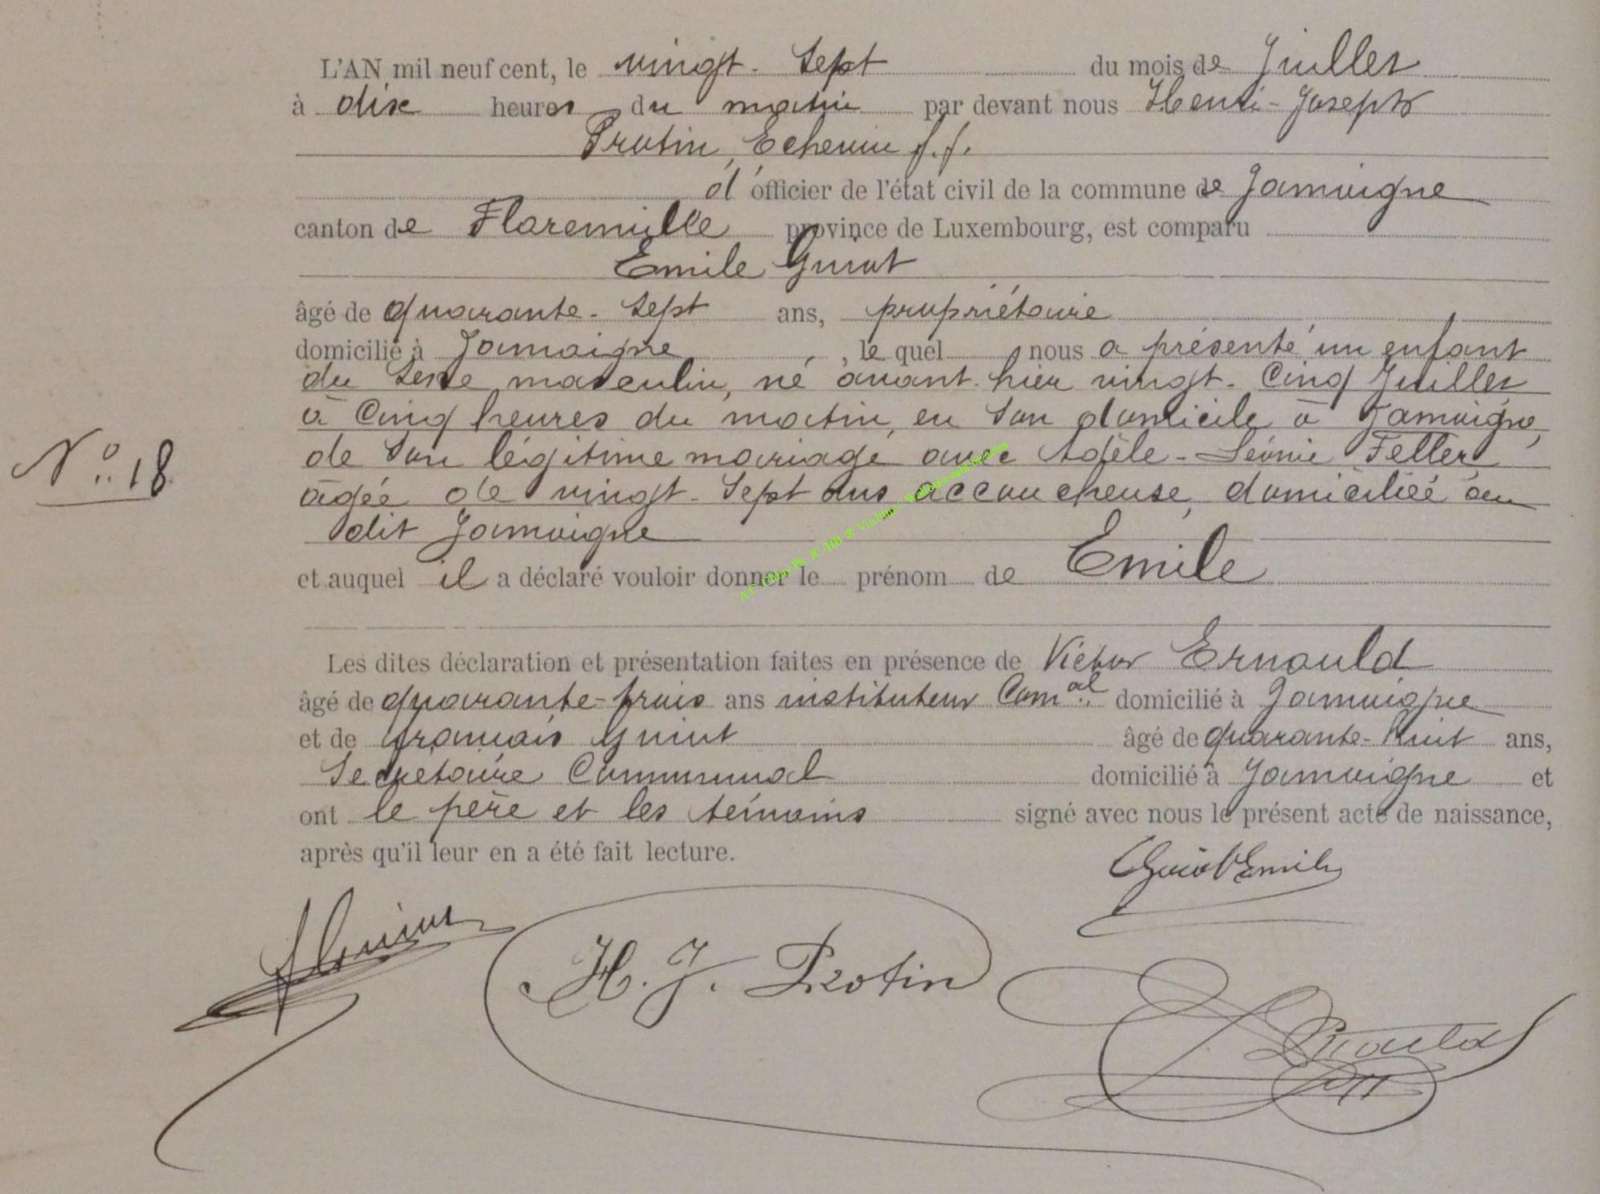 L'AN mil neuf cent, le vingt-sept du mois de Juillet
à dix heures du matin par devant nous Henri-Joseph
Protin, Echevin f.f.
d'officier de l'état civil de la commune de Jamoigne
canton de Florenville province de Luxembourg, est comparu
Emile Guiot
âgé de quarante-sept ans, propriétaire
domicilié à Jamoigne, lequel nous a présenté un enfant
du sexe masculin, né avant-hier vingt-cinq Juillet
à cinq heures du matin, en son domicile à Jamoigne,
N° 18
de son légitime mariage avec Adèle-Léonie Feller,
âgée de vingt-sept ans, accoucheuse, domiciliée au
dit Jamoigne
et auquel il a déclaré vouloir donner le prénom de Emile
Les dites déclaration et présentation faites en présence de Victor Ernould
âgé de quarante-trois ans instituteur Com.al domicilié à Jamoigne
et de françois Guiot âgé de quarante-huit ans,
Secrétaire Communal domicilié à Jamoigne et
ont le père et les témoins signé avec nous le présent acte de naissance,
après qu'il leur en a été fait lecture.
Guiot Emile
H. J. Protin
Ernould